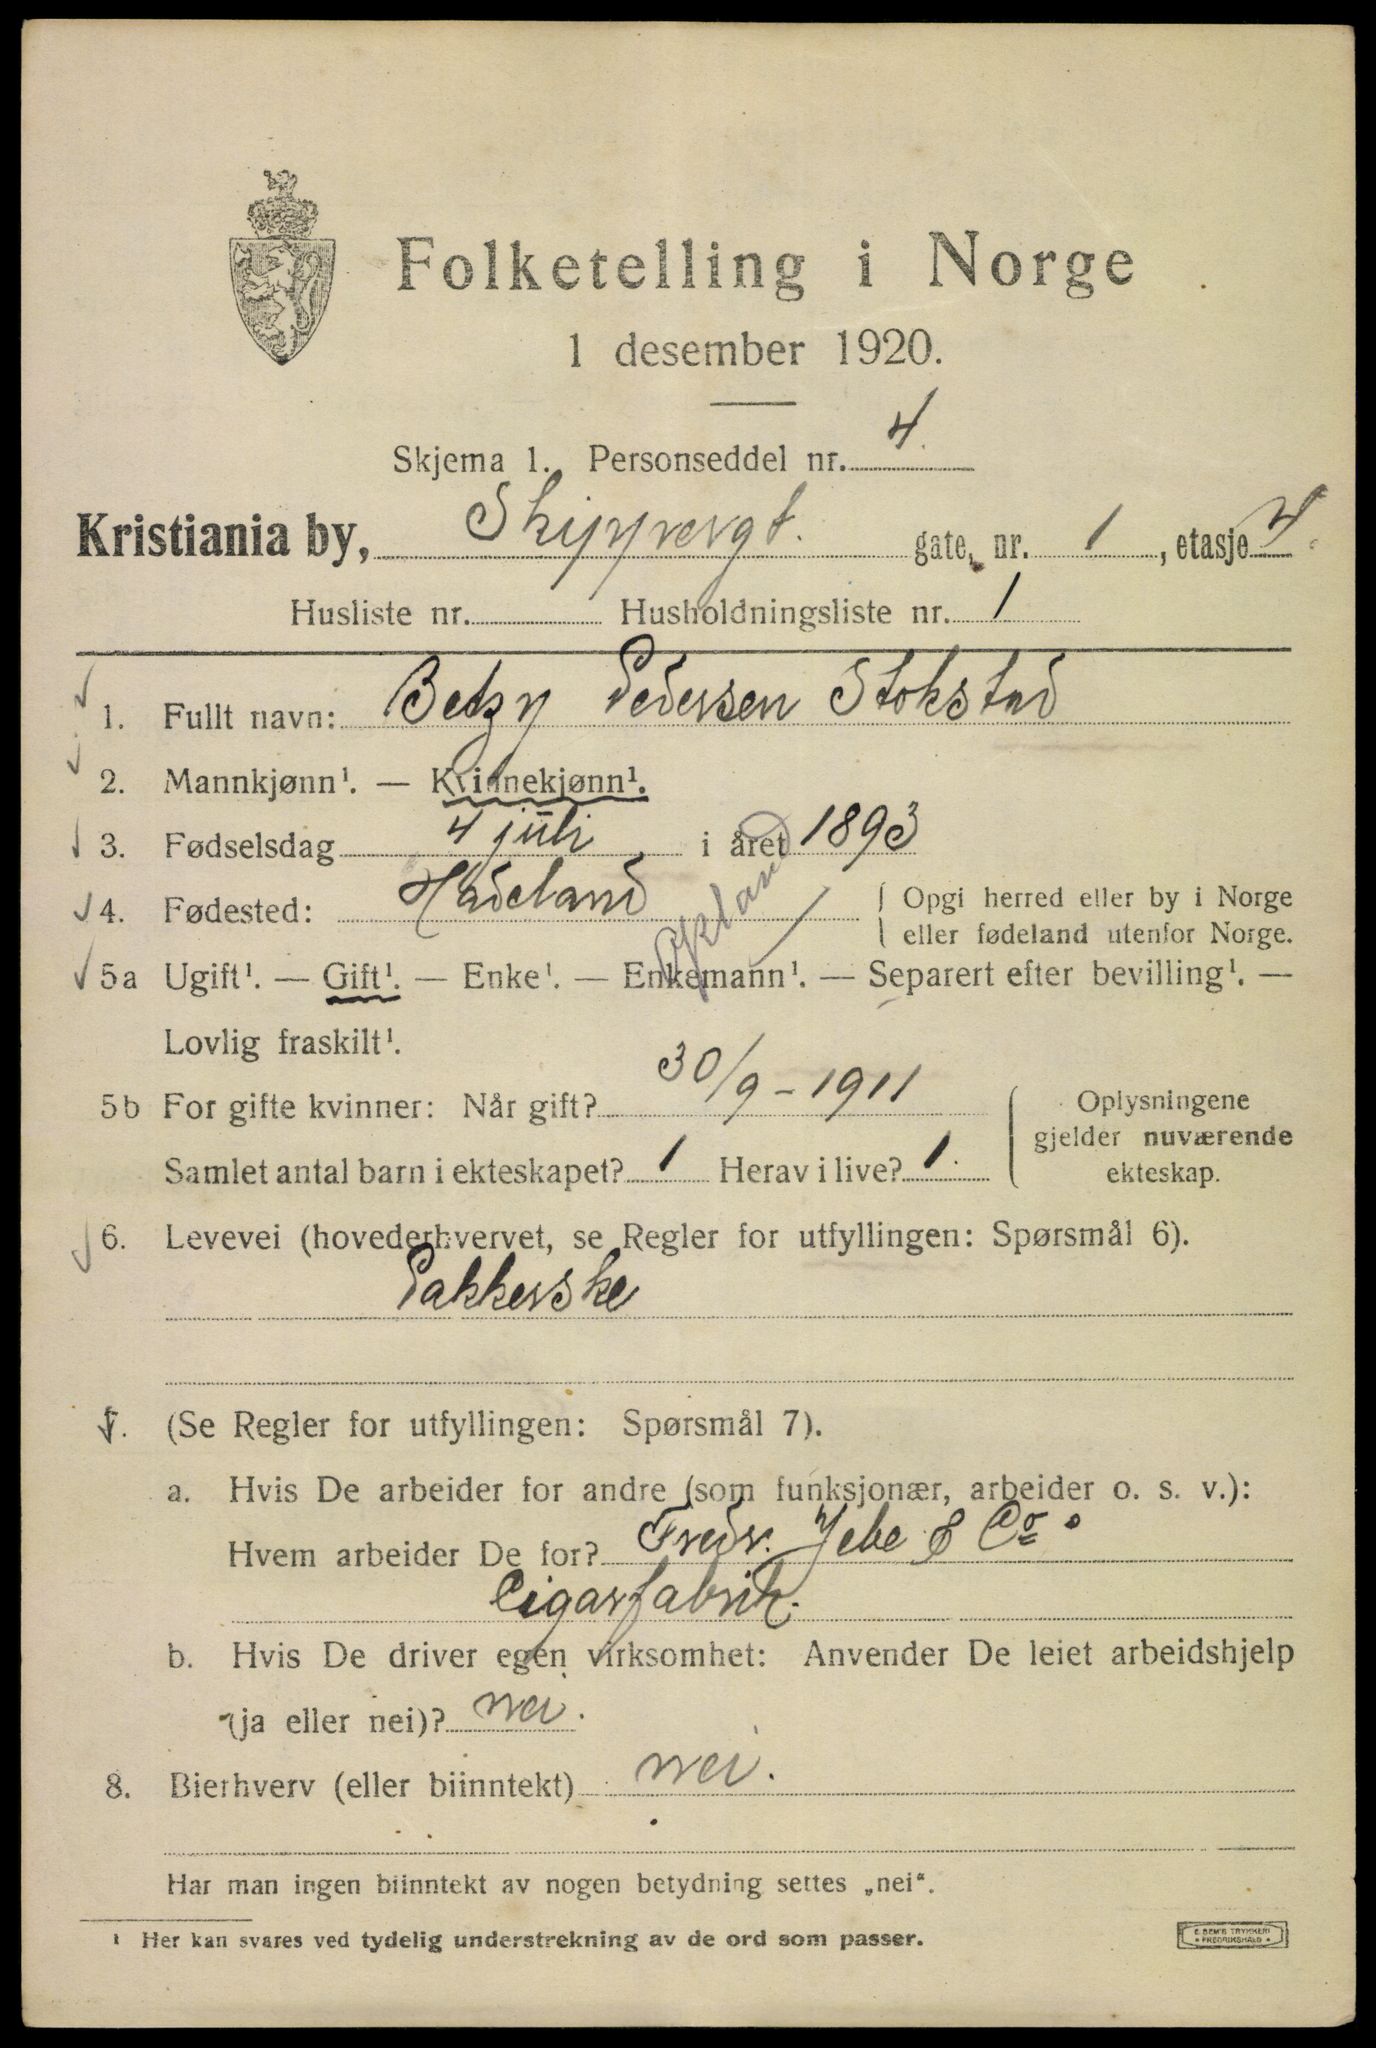 Folketelling i Norge
1 desember 1920.
Skjema 1. Personseddel nr. 4.
Kristiania by, Skippergt. gate, nr. 1, etasje 4.
Husliste nr. Husholdningsliste nr. 1
1. Fullt navn: Betzy Pedersen Stokstad
2. Mannkjønn¹. — Kvinnekjønn¹.
3. Fødselsdag 4 juli i året 1893
4. Fødested: Hadeland { Opgi herred eller by i Norge
eller fødeland utenfor Norge.
Opland
5a Ugift¹. — Gift¹. — Enke¹. — Enkemann¹. — Separert efter bevilling¹. —
Lovlig fraskilt¹.
5b For gifte kvinner: Når gift? 30/9 - 1911
Samlet antal barn i ekteskapet? 1 Herav i live? 1.
{ Oplysningene
gjelder nuværende
ekteskap.
6. Levevei (hovederhvervet, se Regler for utfyllingen: Spørsmål 6).
Pakkerske
7. (Se Regler for utfyllingen: Spørsmål 7).
a. Hvis De arbeider for andre (som funksjonær, arbeider o. s. v.):
Hvem arbeider De for? Fredr. Jebe & Co.
Cigarfabrik.
b. Hvis De driver egen virksomhet: Anvender De leiet arbeidshjelp
(ja eller nei)? nei.
8. Bierhverv (eller biinntekt) nei.
Har man ingen biinntekt av nogen betydning settes „nei“.
¹ Her kan svares ved tydelig understrekning av de ord som passer.
E. SEM'S TRYKKERI
• FREDRIKSHALD •